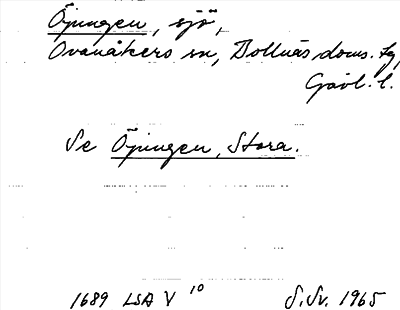 Öjungen, sjö,
Ovanåkers sn, Bollnäs doms. tg,
Gävl. l.
Se Öjungen, Stora.
1689 LSA V 10
S.Sv. 1965